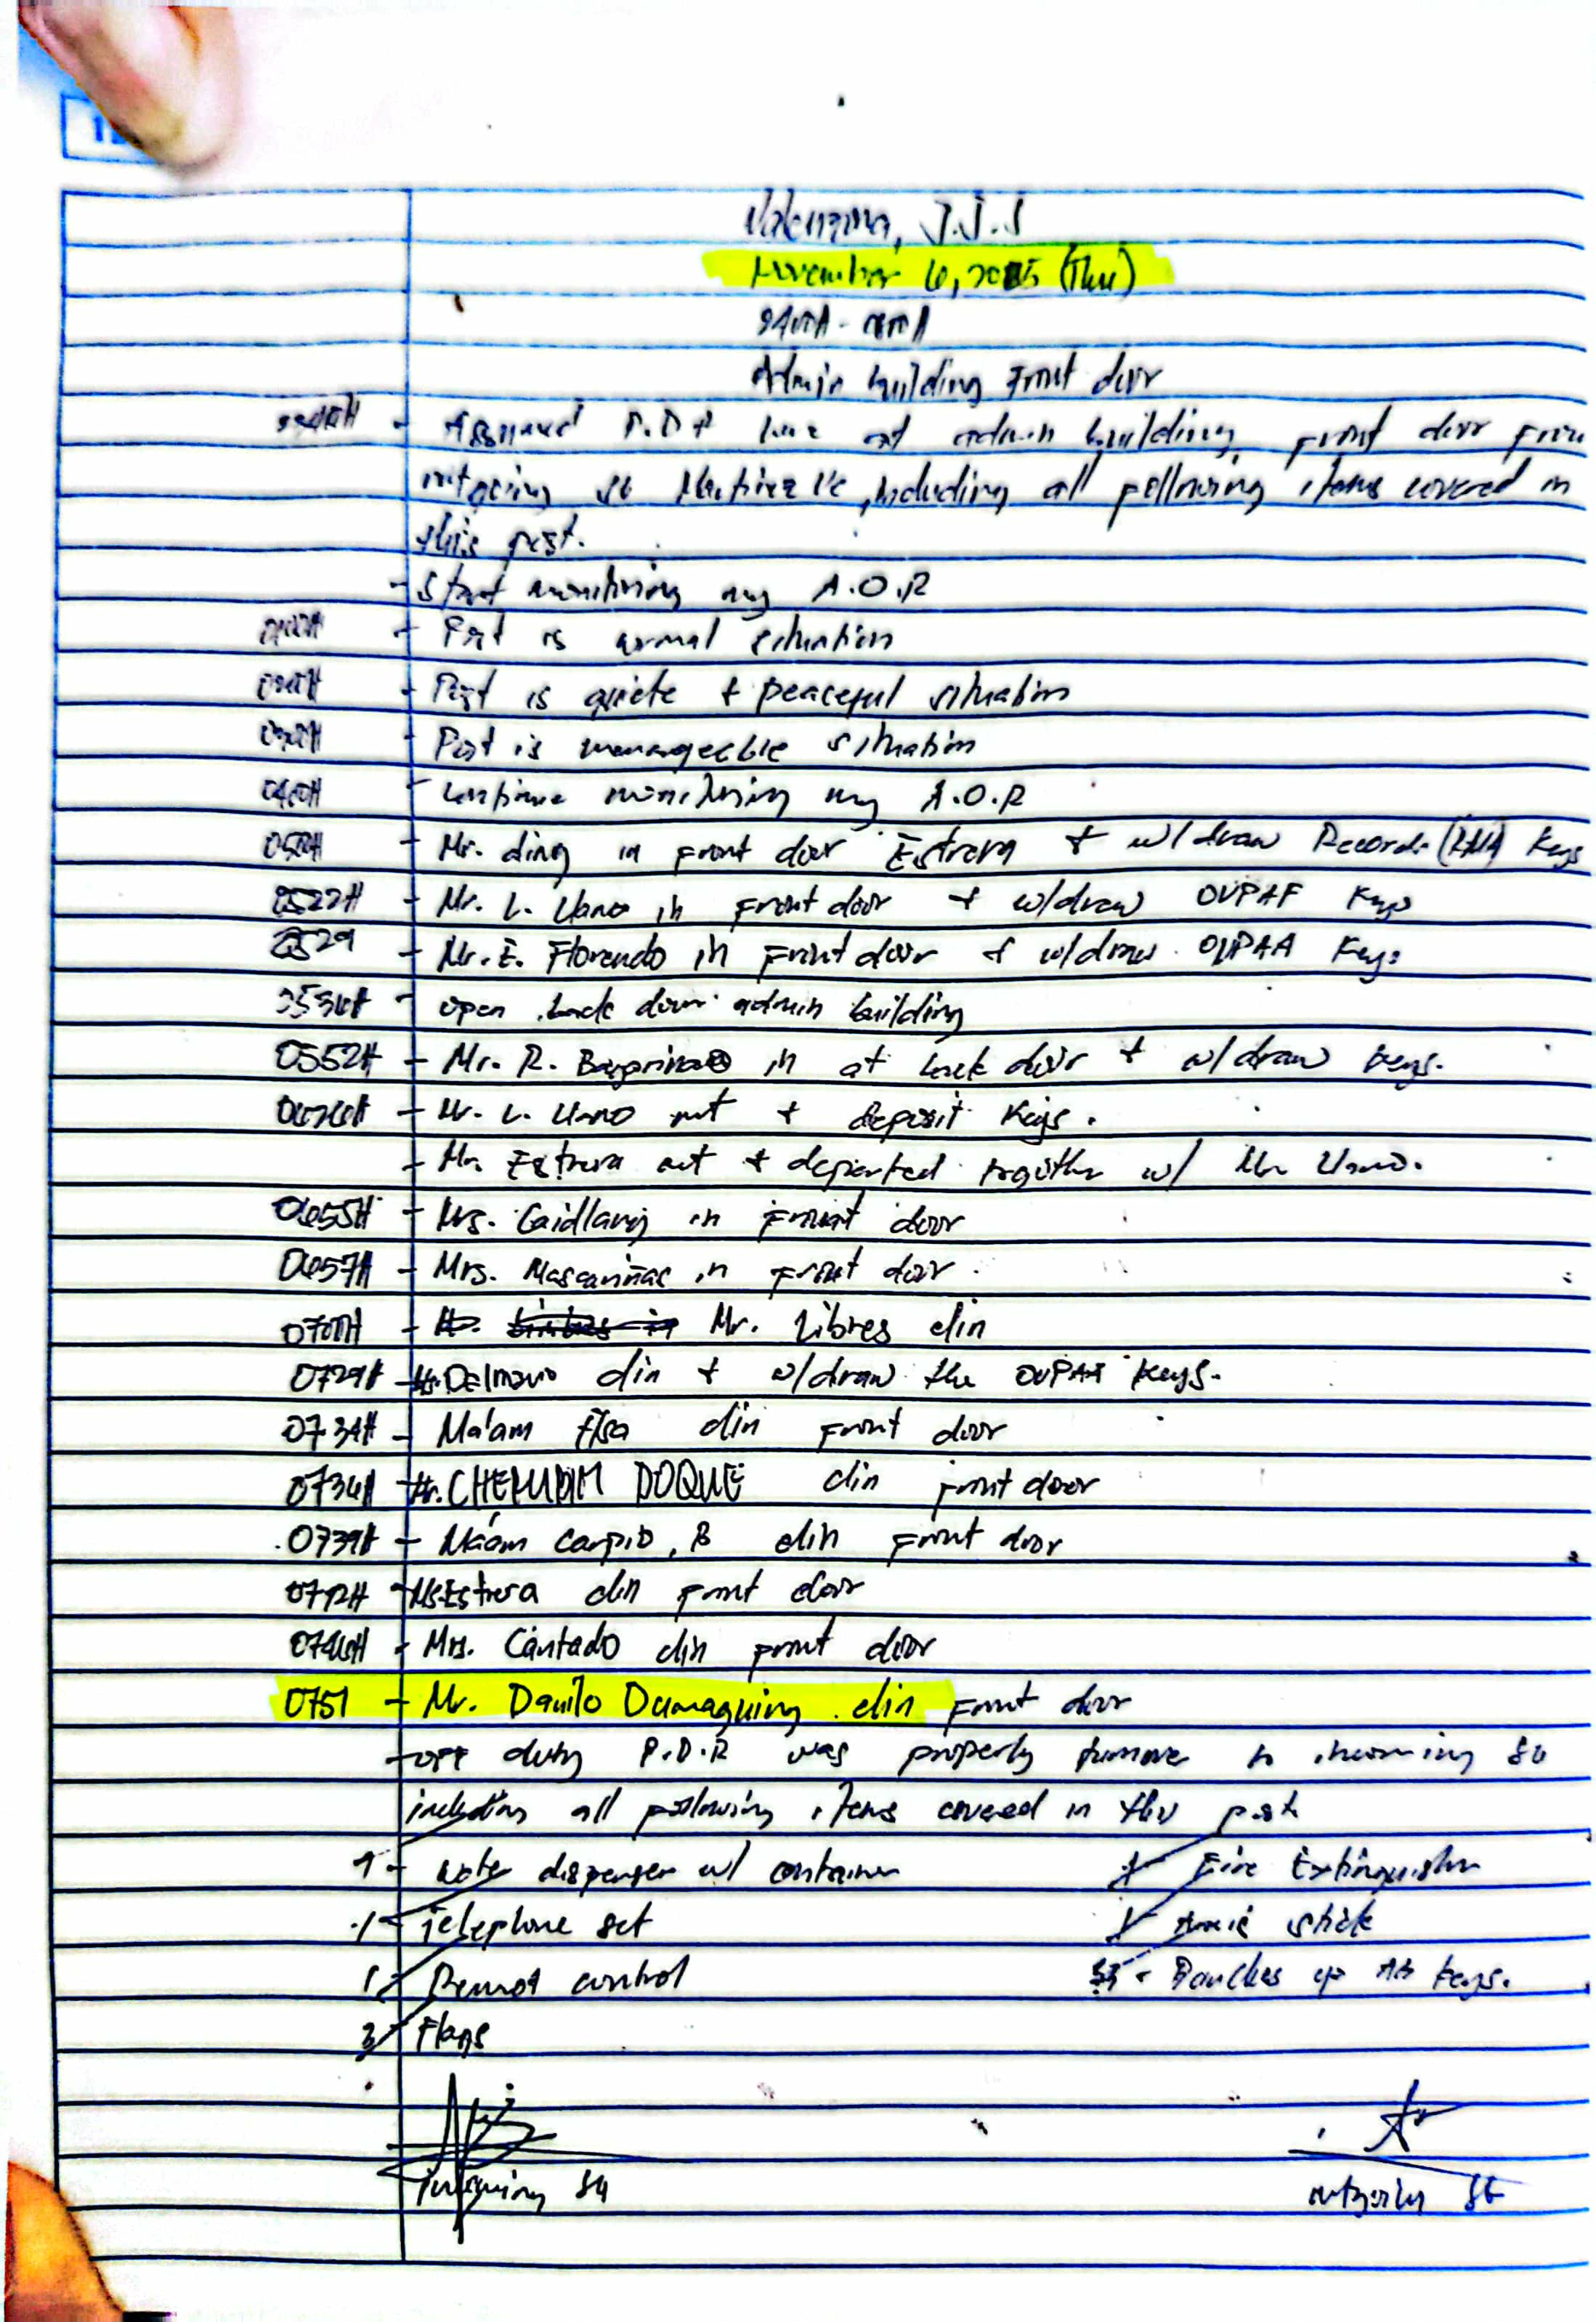 J.J.S
November 6, 2025 (Thu)
Admin building Front door
- Assumed P.D.R here at admin building front door from
outgoing SG Martinez including all following items covered in
this post.
- Start monitoring my A.O.R
0100H - Post is normal situation
0200H - Post is quiete + peaceful situation
0300H - Post is manageeble situation
0400H - Continue monitoring my A.O.R
0500H - Mr. ding in front door Estrera + w/draw Records Keys
0522H - Mr. L. Llano in front door + w/draw OVPAF Keys
0529 - Mr. E. Florendo in front door + w/draw OVPAA Keys
0536H - open back door admin building
0552H - Mr. R. in at back door + w/draw keys.
- Mr. L. Llano out + deposit Keys.
- Mr. Estrera out + departed together w/ Mr Llano.
0655H - Mrs. Gaidlang in front door
0657H - Mrs. Mascariñas in front door
0700H - Mr. Libres clin
0729H - clin + w/draw the OVPAA Keys.
0734H - Ma'am Elsa clin front door
0736H - Mr. DOQUE clin front door
0739H - Ma'am Carpio, B clin front door
0742H - Ms Estrera clin front door
0746H - Mrs. Cantado clin front door
0751 - Mr. Danilo Dumaguing clin front door
- off duty P.D.R was properly turnover to incoming SG
including all following items covered in this post
1 - water dispenser w/ container 1 - Fire Extinguisher
1 - Telephone set 1 - stick
1 - Remot control - Bunches of AB Keys.
3 - Flags
Incoming SG outgoing SG